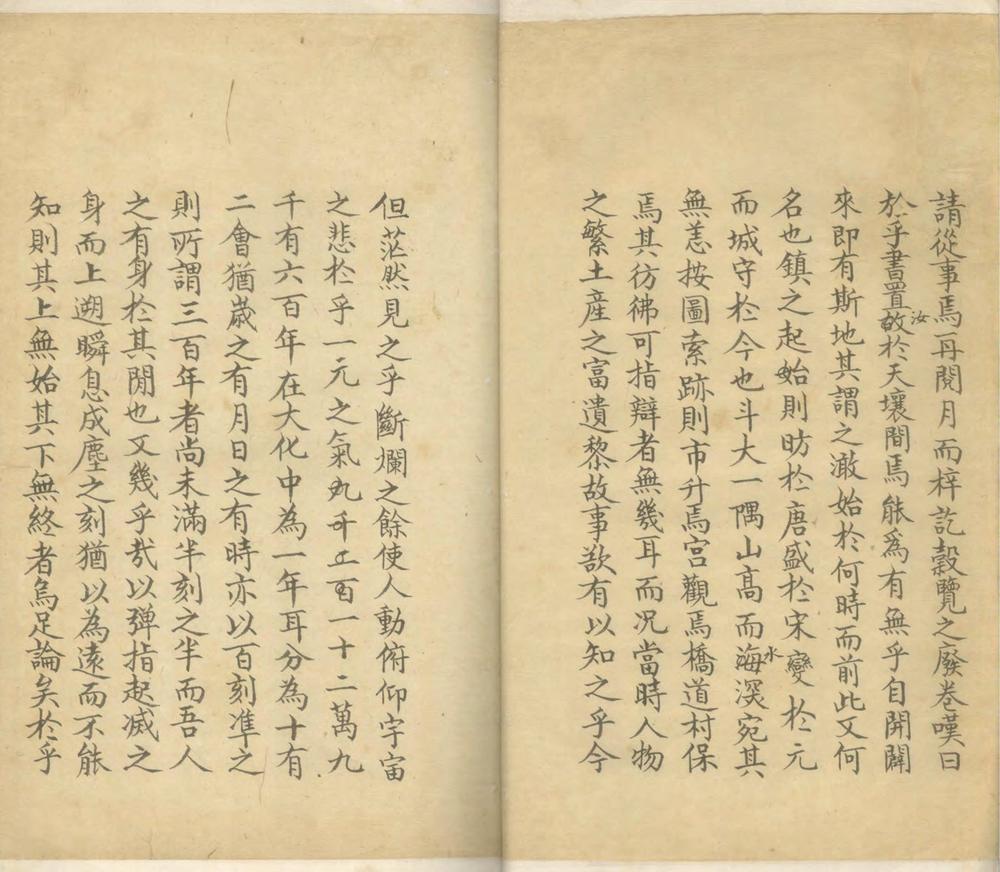 請從事焉再閱月而梓訖穀覽之廢卷嘆曰
於乎書置汝故於天壤間焉能爲有無乎自開闢
來即有斯地其謂之澉始於何時而前此又何
名也鎮之起始則昉於唐盛於宋變於元
而城守於今也斗大一隅山高而海水深宛其
無恙按圖索跡則市升焉宮觀焉橋道村保
焉其彷彿可指辯者無幾耳而况當時人物
之繁土産之富遺黎故事欲有以知之乎今
但茫然見之乎斷爛之餘使人動俯仰宇宙
之悲於乎一元之氣九千五百一十二萬九
千有六百年在大化中為一年耳分為十有
二會猶歲之有月日之有時亦以百刻准之
則所謂三百年者尚未滿半刻之半而吾人
之有身於其閒也又幾乎哉以弹指起滅之
身而上遡瞬息成塵之刻猶以為遠而不能
知則其上無始其下無終者烏足論矣於乎